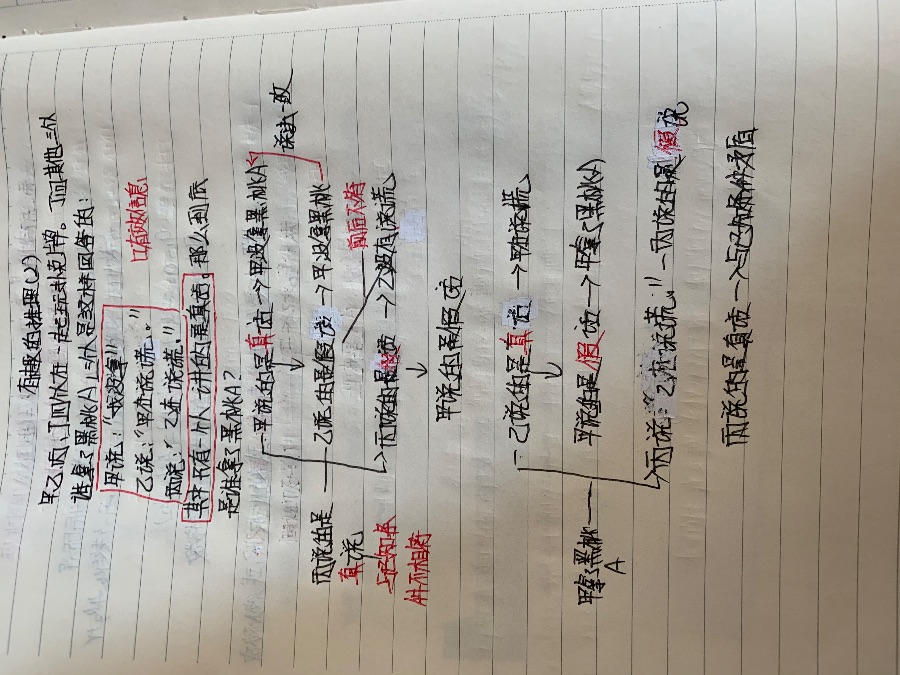 有趣的推理(2)
甲乙丙,丁四个人在一起玩扑克牌。丁问其他三个人
谁拿了黑桃(A),三个人是这样回答的:
甲说:"我没拿!"
乙说:"甲在说谎。"
丙说:"乙在说谎."
有效信息
其中只有一个人讲的是真话。那么到底
是谁拿了黑桃A?
一甲说的是真话→甲没拿黑桃A
说法一致
丙说的是真说
乙说的是假话→甲没拿黑桃
前后不符
丙说的是假话→乙没有说谎
与已知条件不相符
甲说的是假话
一乙说的是真话→甲在说谎
甲拿了黑桃A
甲说的是假话→甲拿了黑桃(A)
丙说:乙在说谎."一丙说的是假说
丙说的是真话→与已知条件矛盾